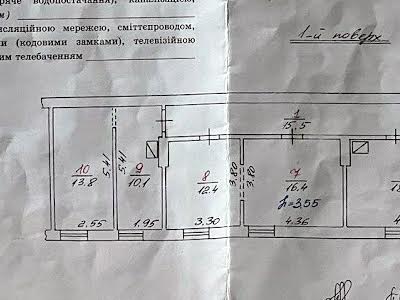 водопостачання), каналізацією,
ом)
нсляційною мережею, сміттєпроводом,
и (кодовими замками), телевізійною
им телебаченням
1-й поверх
1
15.5
10
13.8
5.41
5.41
9
10.1
8
12.4
3.80
3.80
7
16.4
h=3.55
2.55
1.95
3.30
4.36